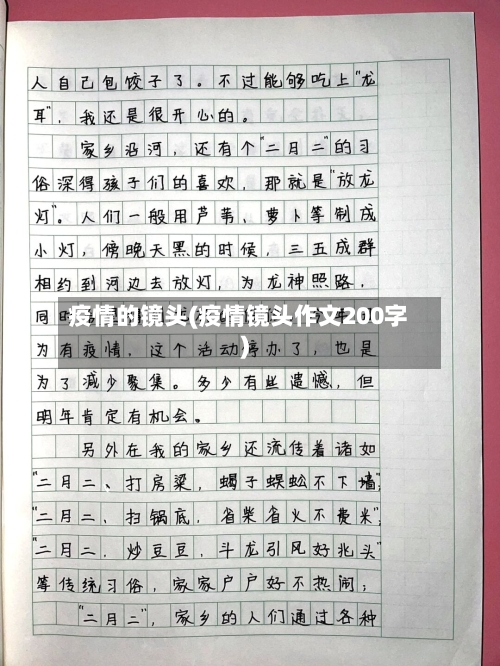 人自己包饺子了。不过能够吃上"龙
耳"，我还是很开心的。
家乡沿河，还有个"二月二"的习
俗深得孩子们的喜欢，那就是"放龙
灯"。人们一般用芦苇、萝卜等制成
小灯，傍晚天黑的时候，三五成群
相约到河边去放灯，为龙神照路，
同时
疫情的镜头(疫情镜头作文200字
)
为有疫情，这个活动停办了，也是
为了减少聚集。多少有些遗憾，但
明年肯定有机会。
另外在我的家乡还流传着诸如
"二月二、打房梁，蝎子蜈蚣不下墙"；
"二月二、扫锅底，省柴省火不费米"；
"二月二、炒豆豆，斗龙引风好兆头"
等传统习俗，家家户户好不热闹；
"二月二"，家乡的人们通过各种